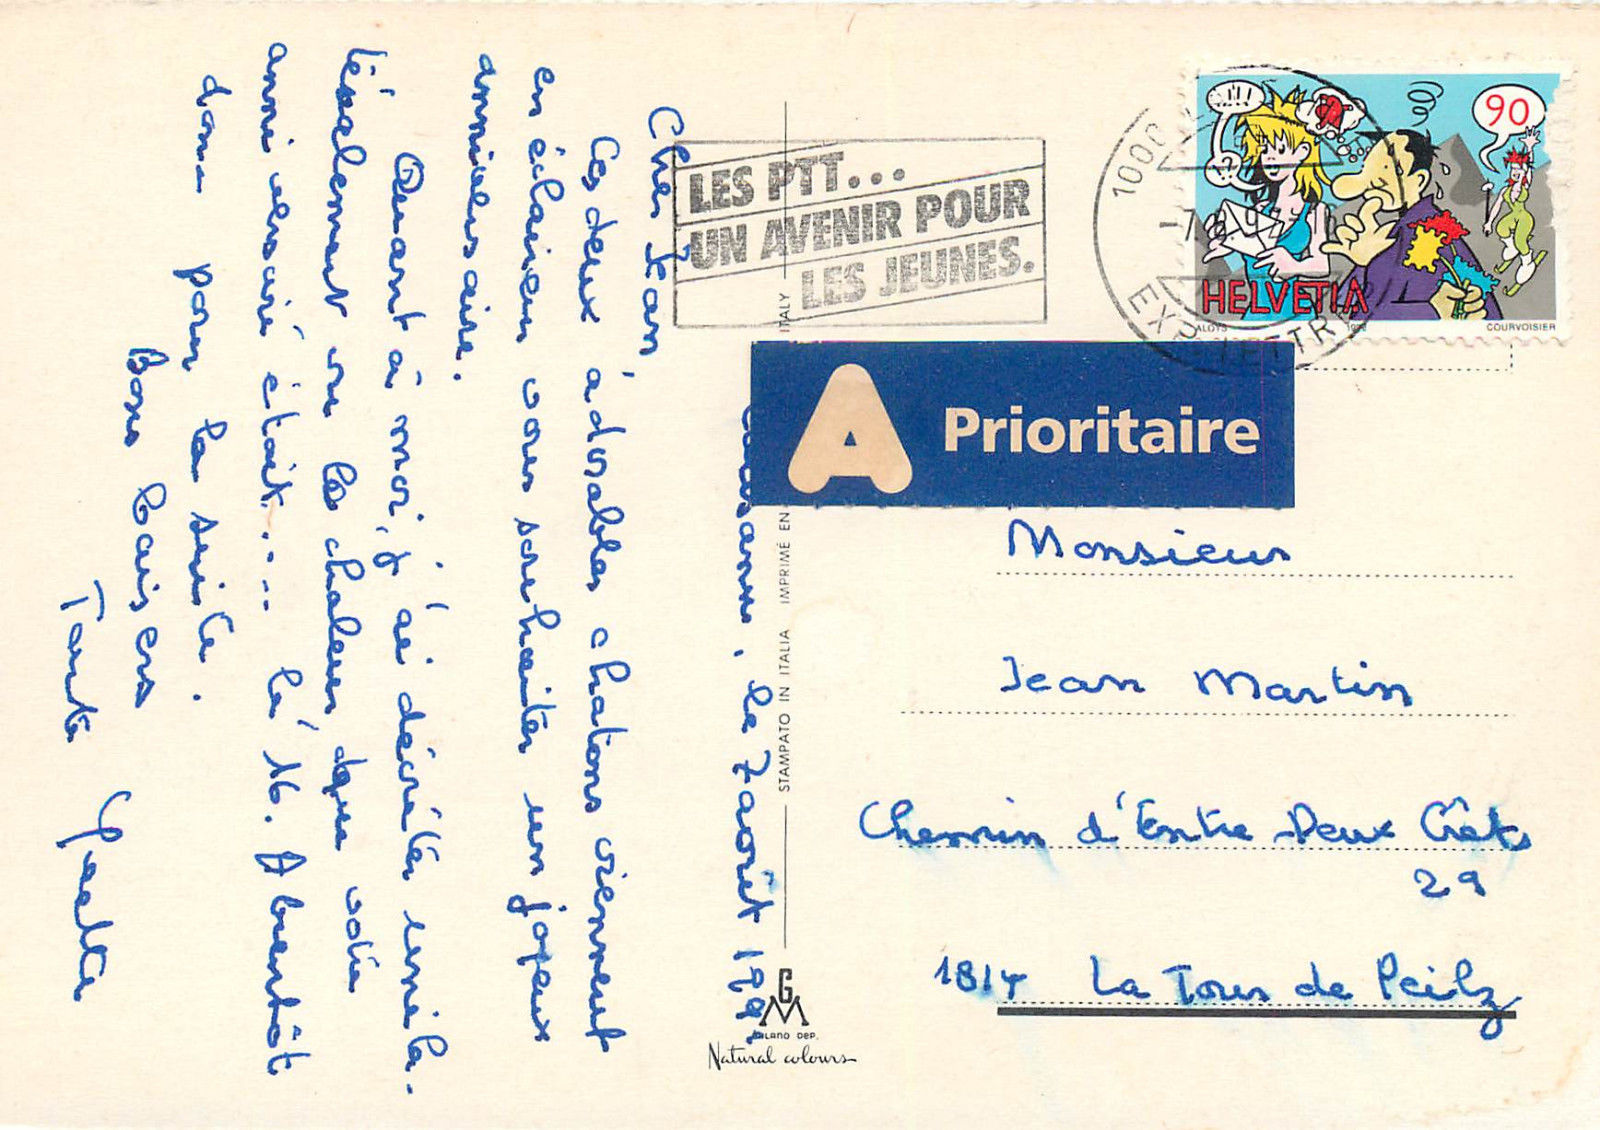 Lausanne, le 7 août 199
Cher Jean,
Ces deux adorables chatons viennent
en éclaireur vous souhaiter un joyeux
anniversaire.
Quant à moi, j'ai décrété unila-
téralement vu la chaleur que votre
anniversaire était.... le 16. A bientôt
donc pour la suite.
Bons baisers
Tante Yvette
LES PTT...
UN AVENIR POUR
LES JEUNES.
1000
-7.8.9
EXP. LETTRE
!!!
??
90
HELVETIA
ALOYS 1992 COURVOISIER
A Prioritaire
Monsieur
Jean Martin
Chemin d'Entre Deux Crêts
29
1814 La Tour de Peilz
STAMPATO IN ITALIA IMPRIMÉ EN ITALY
GM
MILANO DEP.
Natural colours